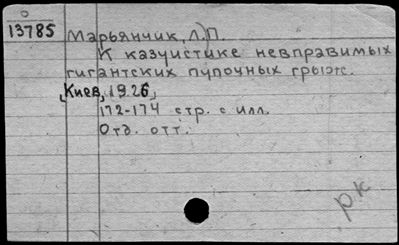 0
13785 Марьянчик, Л.П.
К казуистике невправимых
гигантских пупочных грыж.
Киев, 1926,
172-174 стр. с илл.
Отд. отт.
рк